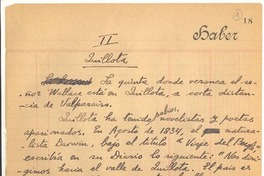 18
Haber
II
Quillota
La quinta donde veranea el se-
ñor Wallace está en Quillota, a corta distan-
cia de Valparaíso.
Quillota ha tenido novelistas y poetas
apasionados. En Agosto de 1834, el natura-
lista Darwin, bajo el título "Viaje del Beagle",
escribía en su Diario lo siguiente: "Nos diri-
gimos hacia el valle de Quillota. El país es